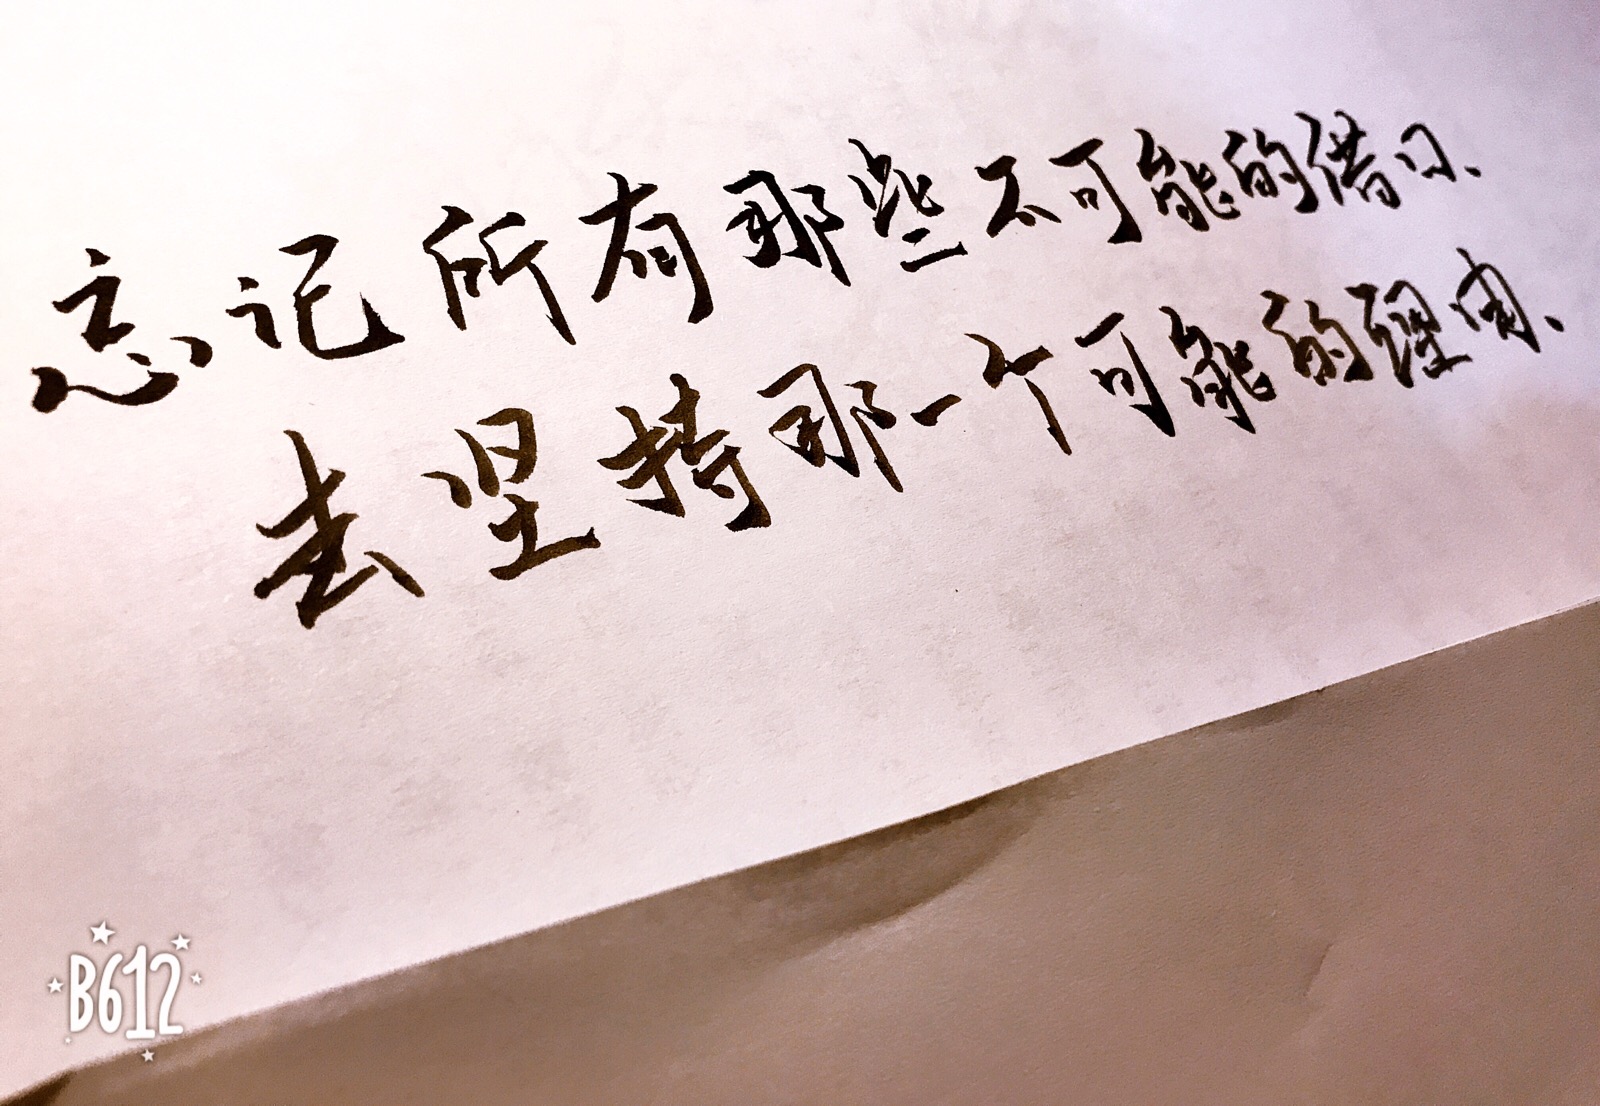 忘记所有那些不可能的借口、
去坚持那一个可能的理由、
B612